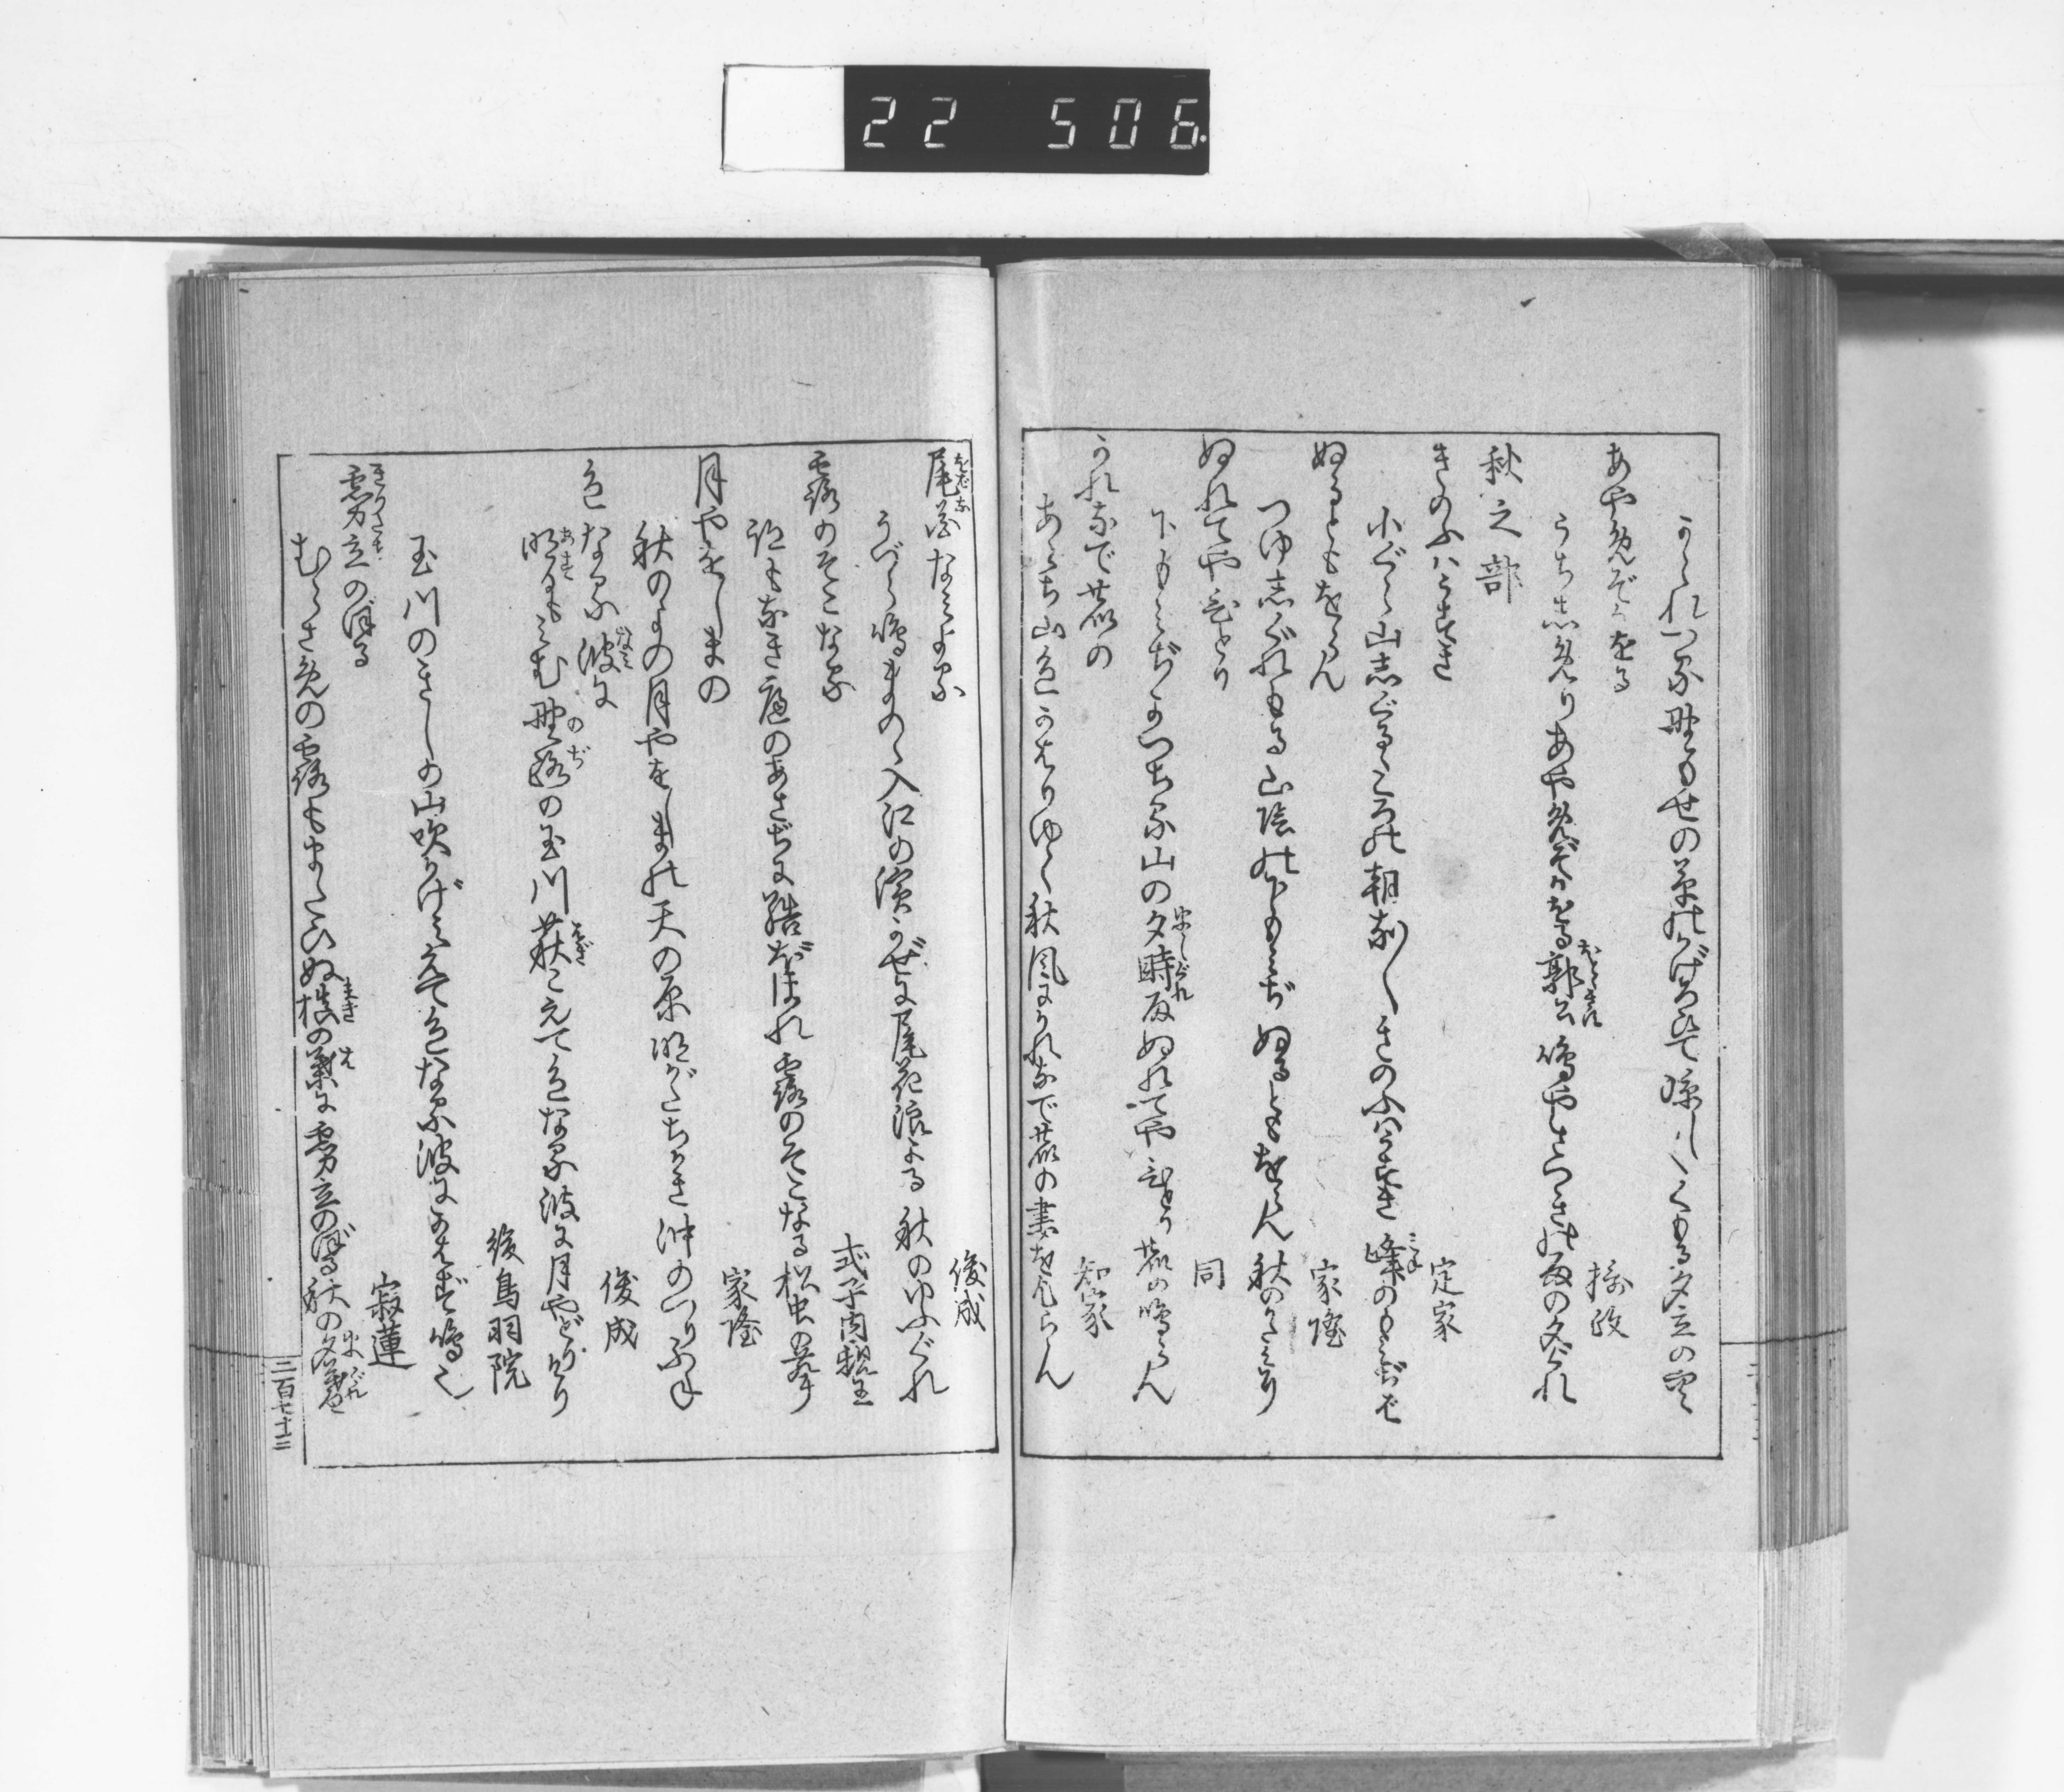 22 506
よられつる野もせの草のかげろひて涼しくくもる夕立の空
あやめぞかをる　摂政
うち志めりあやめぞかをる郭公鳴やさつきの雨の夕ぐれ
秋之部
きのふハうすき　定家
小ぐら山志ぐるゝころの朝な〱きのふハうすき峰のもみぢば
ぬるともをらん　家隆
つゆ志ぐれもる山陰の下もみぢぬるともをらん秋のかたみに
ぬれてやひとり　同
下もみぢかつちる山の夕時雨ぬれてやひとり鹿の鳴らん
かれなで鹿の　知家
あさぢ山色かはりゆく秋風にかれなで鹿の妻をとふらん
尾花なみよる　俊成
うづら鳴まのゝ入江の濱かぜに尾花浪よる秋のゆふぐれ
露のそこなる　式子内親王
跡もなき庭のあさぢに結ぼほれ露のそこなる松虫の聲
月やをじまの　家隆
秋のよの月やをじまの天の原明がたちかき沖のつりふね
色なる波に　俊成
明日もこむ野路の玉川萩こえて色なる波に月やどりけり
後鳥羽院
玉川のきしの山吹かげみえて色なる波にかはづ鳴也
霧立のぼる　寂蓮
むらさめの露もまだひぬ槙の葉に霧立のぼる秋の夕暮
二百七十三